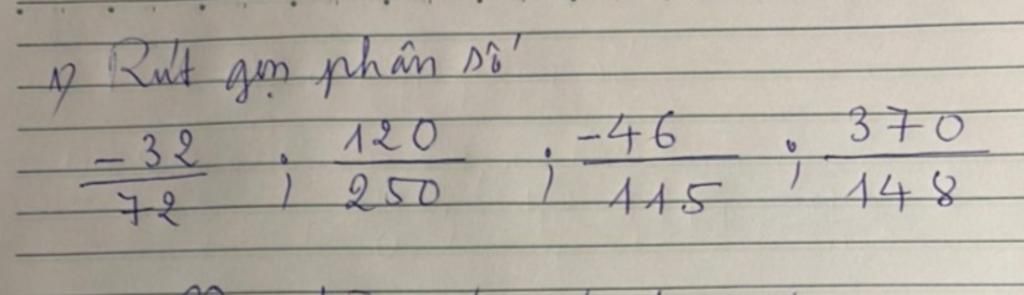 1) Rút gọn phân số
-32/72 ; 120/250 ; -46/115 ; 370/148